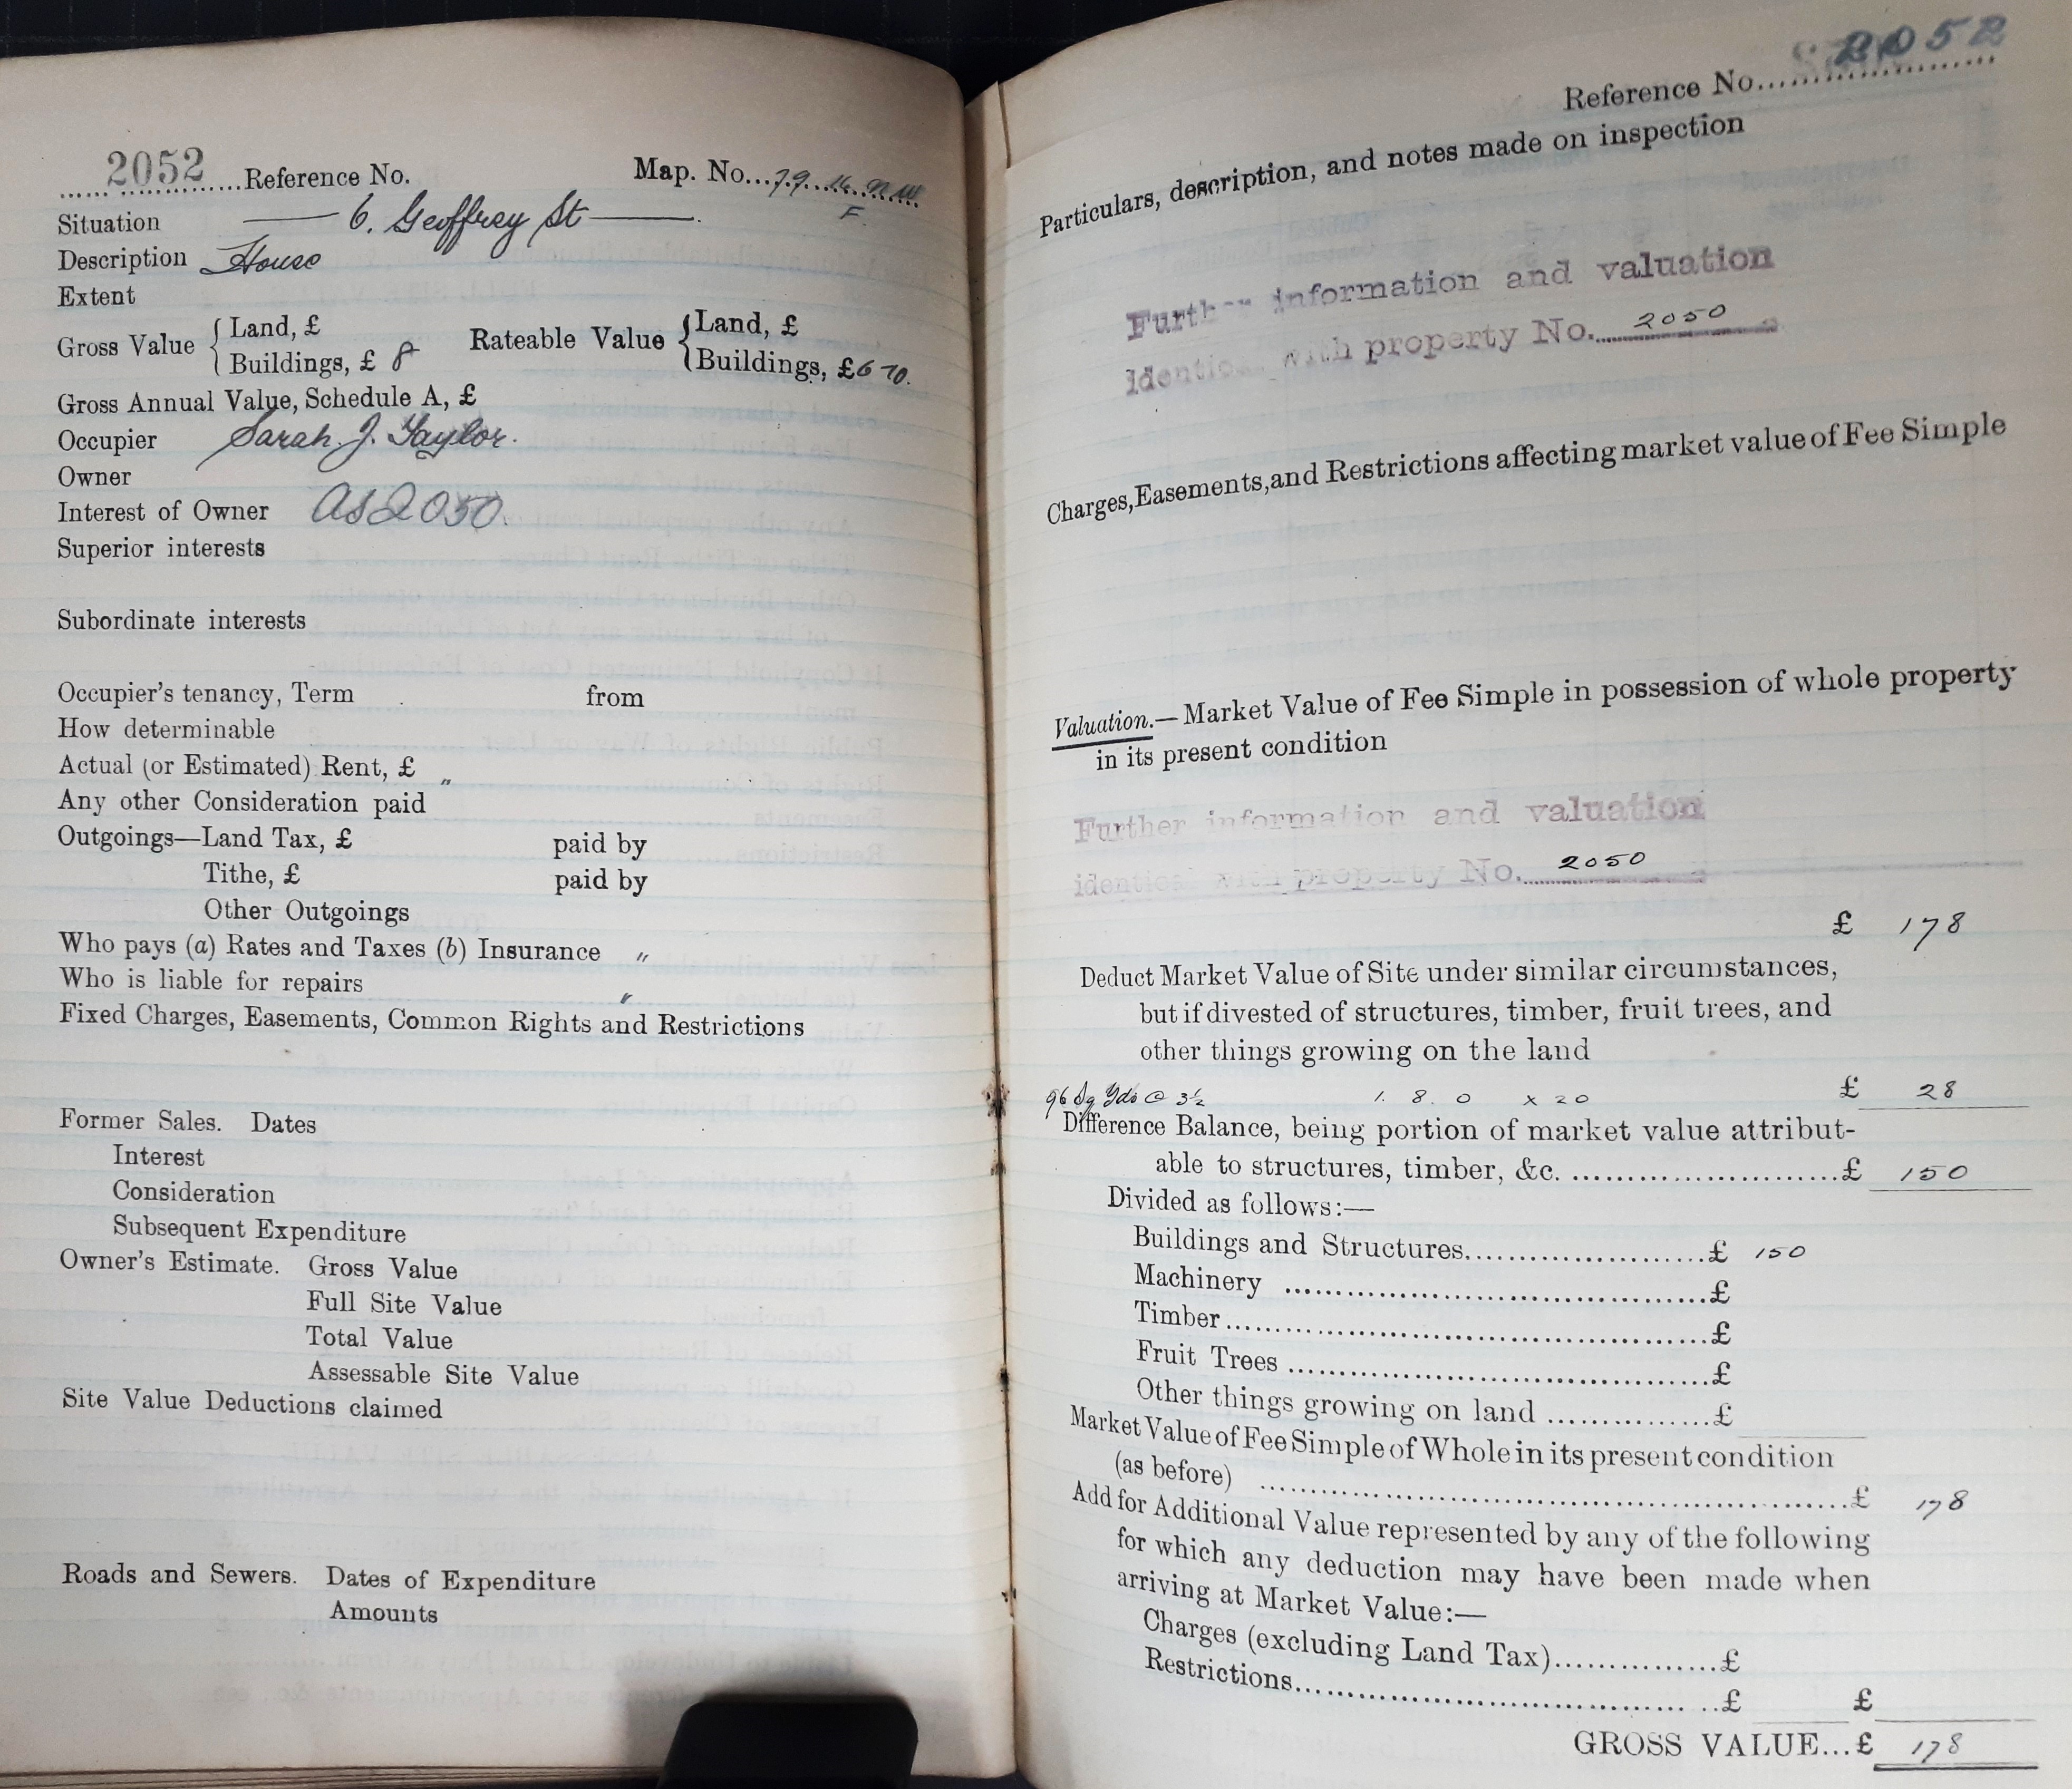 2052 Reference No. Map. No. 79. 16. N W
F.
Situation 6. Geoffrey St
Description House
Extent
Gross Value { Land, £ Rateable Value { Land, £
Buildings, £ 8 Buildings, £6 10.
Gross Annual Value, Schedule A, £
Occupier Sarah. J. Taylor.
Owner
Interest of Owner as 2050.
Superior interests
Subordinate interests
Occupier's tenancy, Term from
How determinable
Actual (or Estimated) Rent, £ "
Any other Consideration paid
Outgoings—Land Tax, £ paid by
Tithe, £ paid by
Other Outgoings
Who pays (a) Rates and Taxes (b) Insurance "
Who is liable for repairs "
Fixed Charges, Easements, Common Rights and Restrictions
Former Sales. Dates
Interest
Consideration
Subsequent Expenditure
Owner's Estimate. Gross Value
Full Site Value
Total Value
Assessable Site Value
Site Value Deductions claimed
Roads and Sewers. Dates of Expenditure
Amounts
Reference No. 2052
Particulars, description, and notes made on inspection
Further information and valuation
identical with property No. 2050
Charges, Easements, and Restrictions affecting market value of Fee Simple
Valuation.—Market Value of Fee Simple in possession of whole property
in its present condition
Further information and valuation
identical with property No. 2050
£ 178
Deduct Market Value of Site under similar circumstances,
but if divested of structures, timber, fruit trees, and
other things growing on the land
96 Sq Yds @ 3½ 1. 8. 0 x 20 £ 28
Difference Balance, being portion of market value attribut-
able to structures, timber, &c. £ 150
Divided as follows:—
Buildings and Structures £ 150
Machinery £
Timber £
Fruit Trees £
Other things growing on land £
Market Value of Fee Simple of Whole in its present condition
(as before) £ 178
Add for Additional Value represented by any of the following
for which any deduction may have been made when
arriving at Market Value:—
Charges (excluding Land Tax) £
Restrictions £ £
GROSS VALUE...£ 178